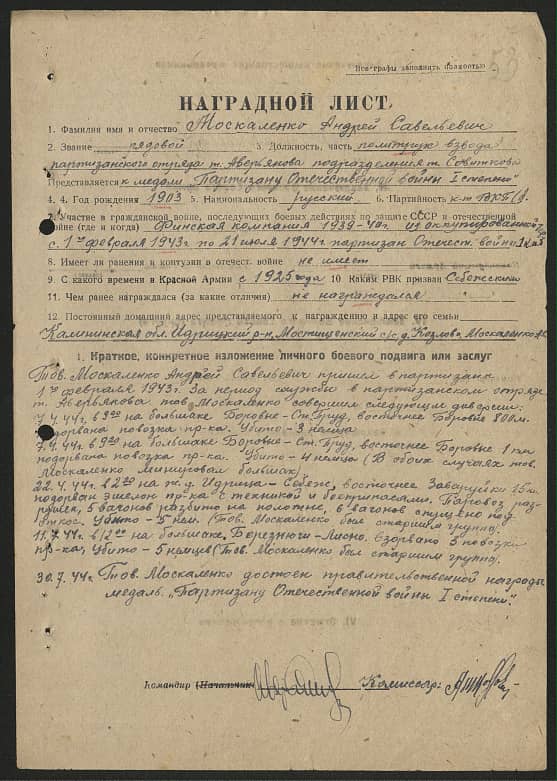 Все графы заполнить полностью
53
НАГРАДНОЙ ЛИСТ
1. Фамилия имя и отчество Москаленко Андрей Савельевич
2. Звание рядовой 3. Должность, часть политрук взвода
партизанского отряда т. Аверьянова подразделения т.
Представляется к медали "Партизану Отечественной войны I степени"
4. 4. Год рождения 1903 5. Национальность русский 6. Партийность к-т ВКП(б)
7. Участие в гражданской войне, последующих боевых действиях по защите СССР и отечественной
войне (где и когда) Финская компания 1939-40г. из оккупированной
с 1го февраля 1943г по 21 июля 1944г партизан Отечест. войны
8. Имеет ли ранения и контузии в отечест. войне не имеет
9 С какого времени в Красной Армии с 1925 года 10. Каким РВК призван Себежским
11. Чем ранее награждался (за какие отличия) не награждался
12. Постоянный домашний адрес представляемого к награждению и адрес его семьи
Калининская обл. Идрицкий р-н, Мостищенский с/с д. Козлово Москаленко
1. Краткое, конкретное изложение личного боевого подвига или заслуг
Тов. Москаленко Андрей Савельевич пришел в партизаны
1го февраля 1943г. За период службы в партизанском отряде
т. Аверьянова тов. Москаленко совершил следующие диверсии:
7.4.44г в 3 00 на большаке Боровне-Ст. Пруд, восточнее Боровне 800 м.
подорвана повозка пр-ка. Убито-3 немца
7.4.44г в 9 00 на большаке Боровне-Ст. Пруд, восточнее Боровне 1 км
подорвана повозка пр-ка. Убито-4 немца (В обоих случаях тов.
Москаленко минировал большак)
22.4.44г в 2 00 на ж.д Идрица-Себеж, восточнее
подорван эшелон пр-ка с техникой и боеприпасами. Паровоз раз-
рушен, 5 вагонов разбито на полотне, 6 вагонов под
откос. Убито-5 нем. (Тов. Москаленко был старшим группы.
11.7.44г в 12 00 на большаке Березнюги-Лисно. Взорвано 3 повозки
пр-ка, Убито-5 немцев (Тов. Москаленко был старшим группы.
30.7.44г Тов. Москаленко достоен правительственной награды
медаль "Партизану Отечественной войны I степени".
Командир (Начальник) Комиссар: